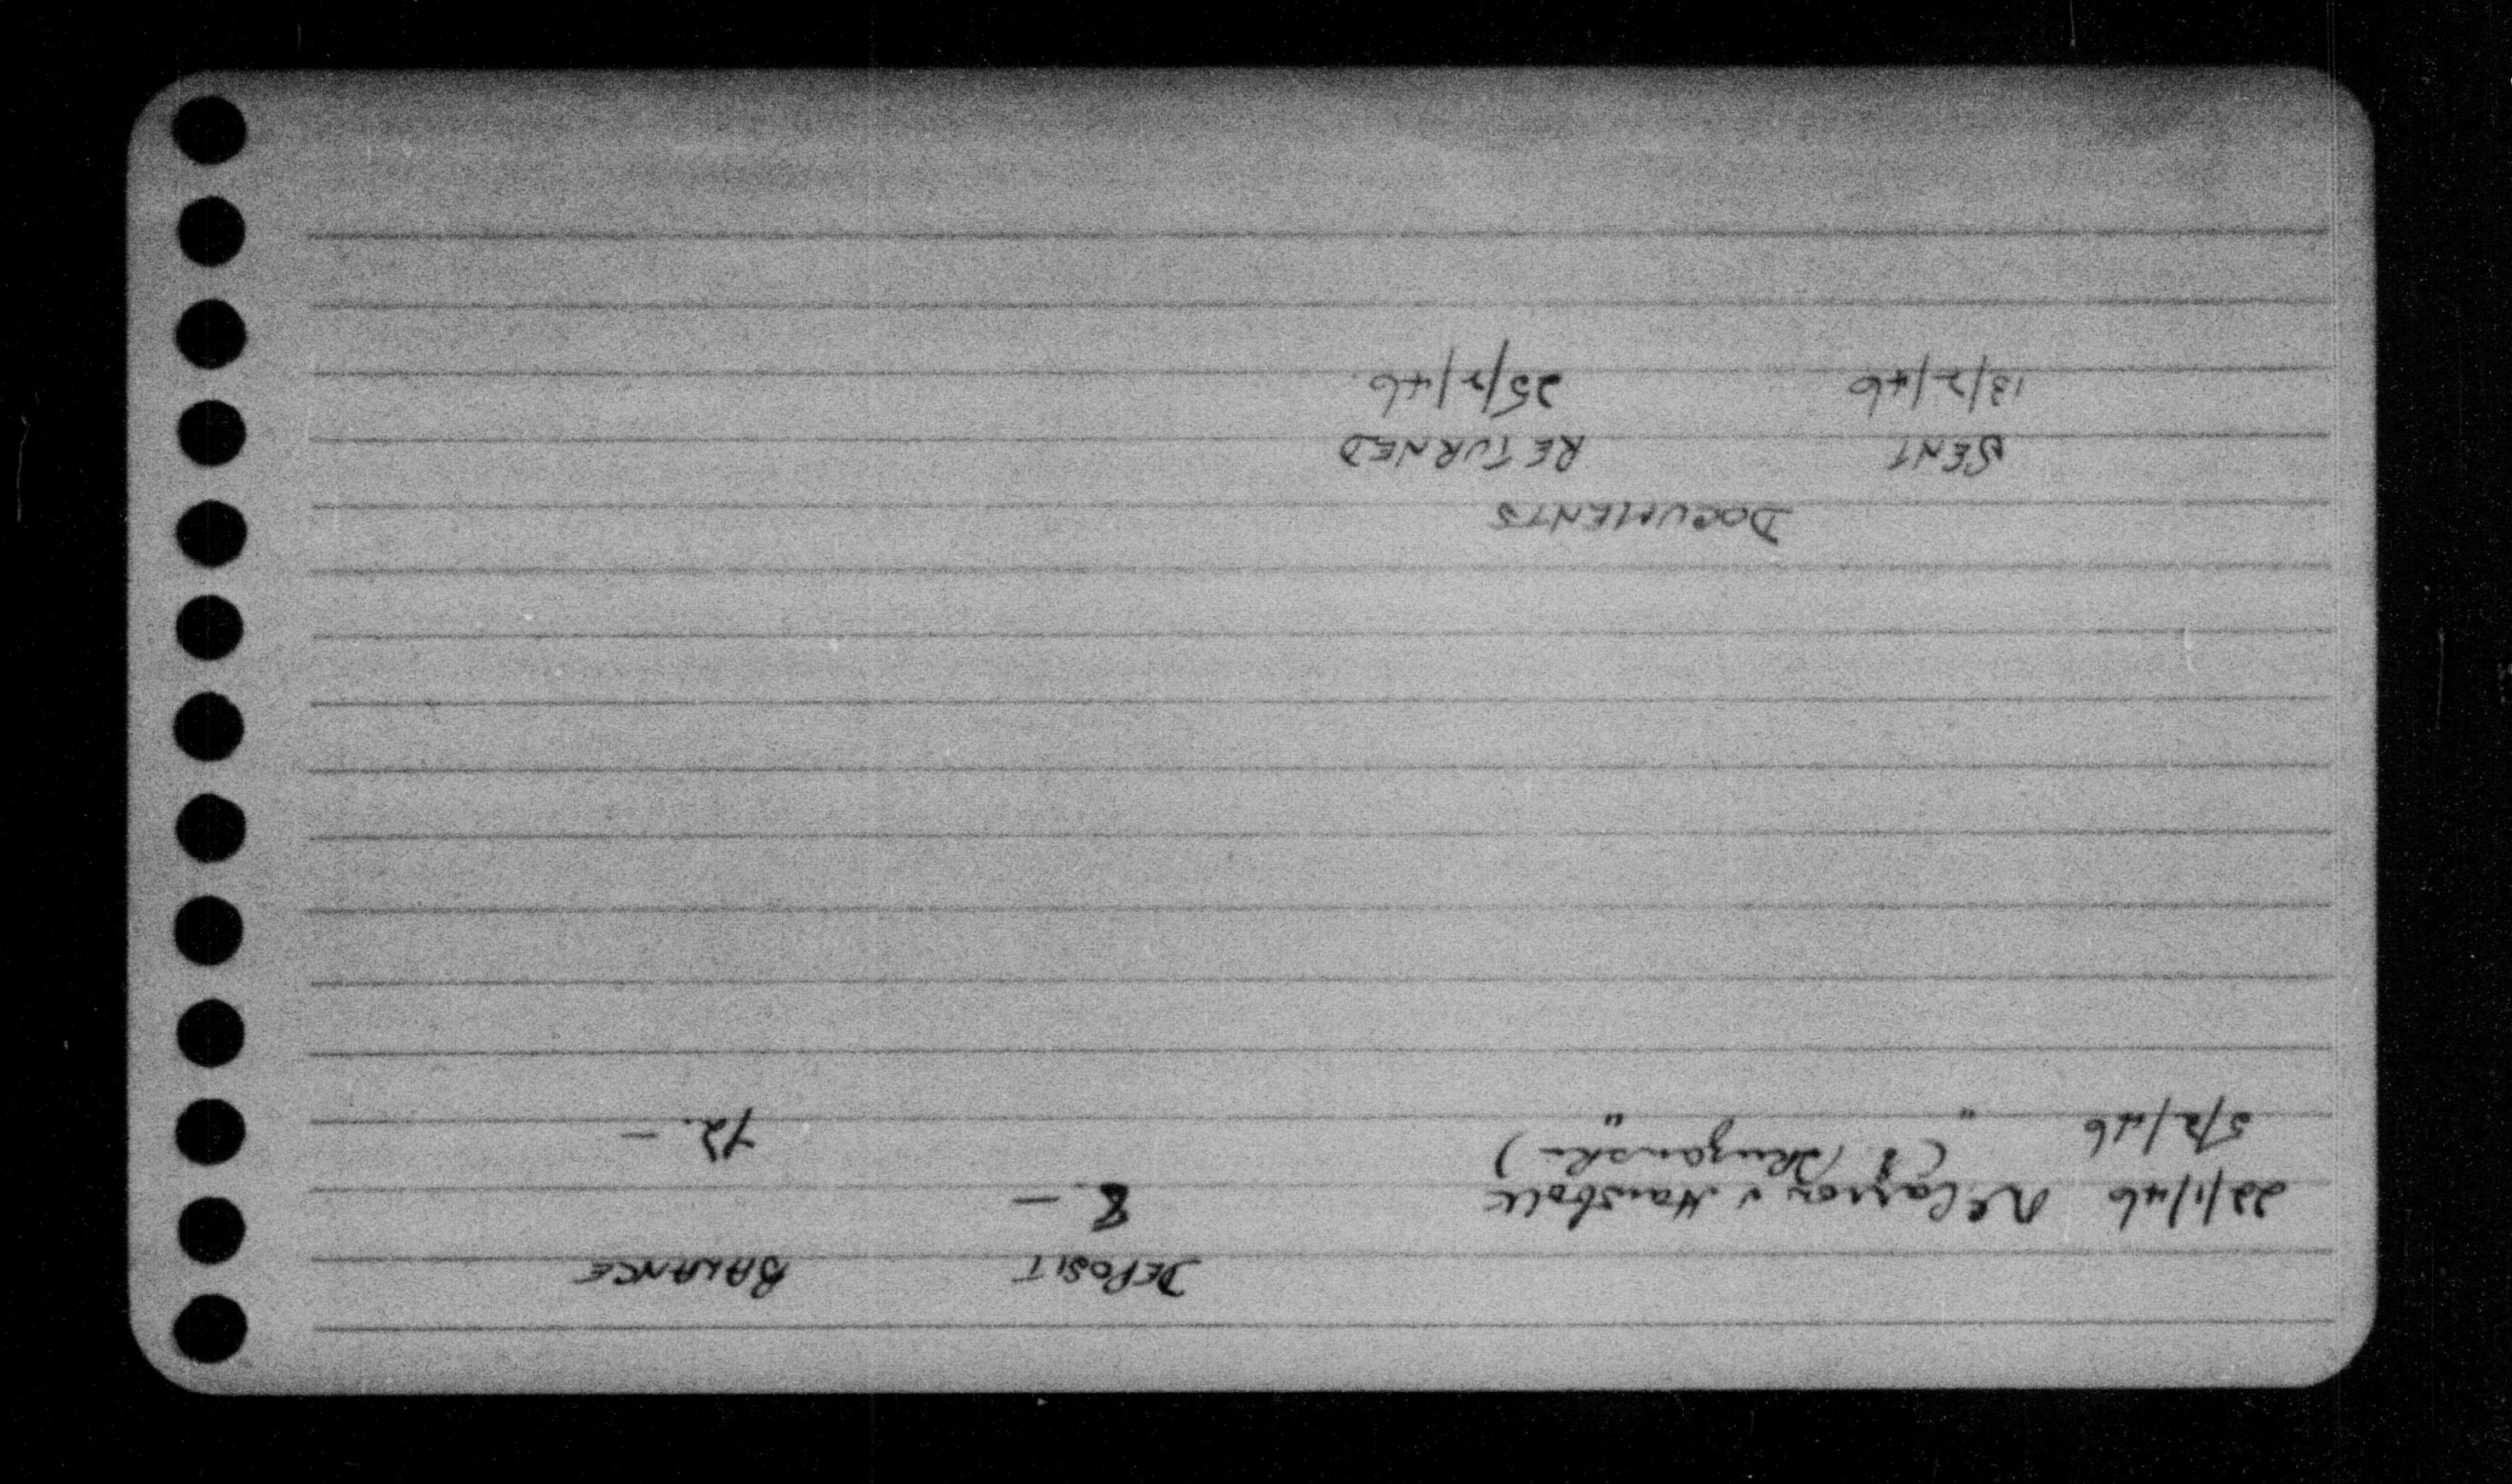 DEPOSIT BALANCE
22/1/46 v 8. —
5/2/46 " " 72. —
DOCUMENTS
SENT RETURNED
13/2/46 25/2/46